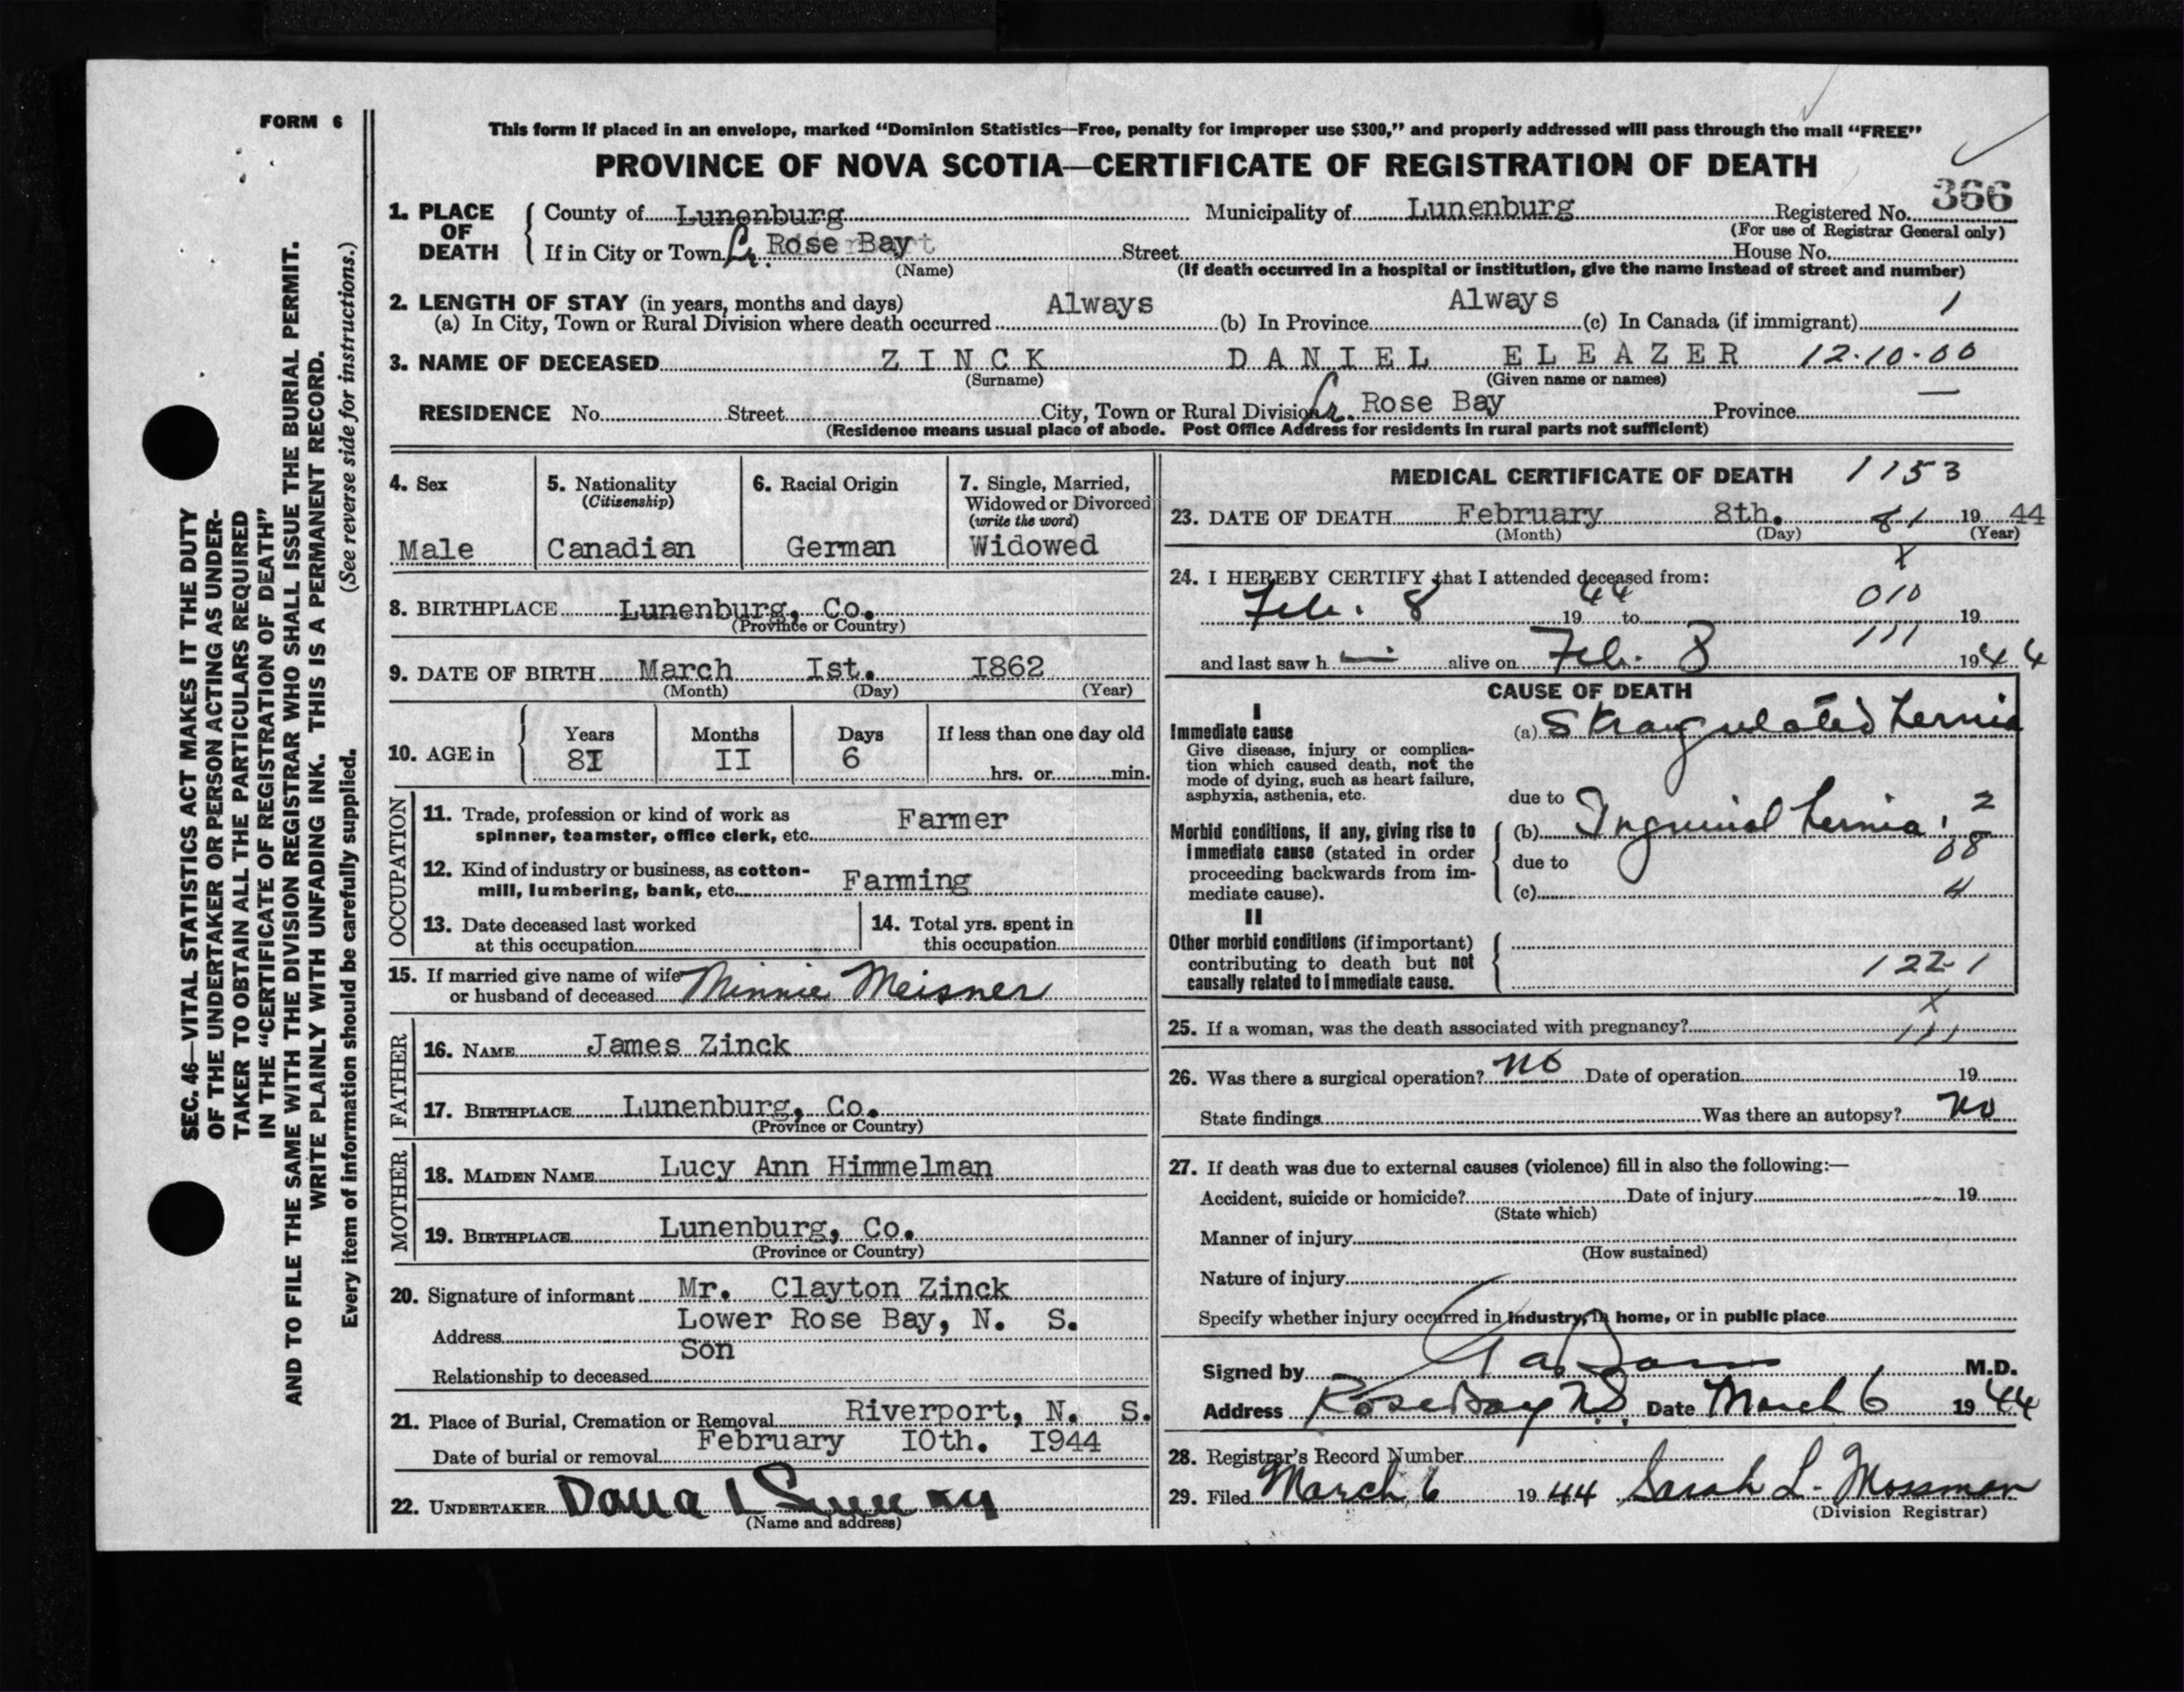 FORM 6
This form if placed in an envelope, marked “Dominion Statistics—Free, penalty for improper use $300,” and properly addressed will pass through the mail “FREE”
PROVINCE OF NOVA SCOTIA—CERTIFICATE OF REGISTRATION OF DEATH
366
1. PLACE OF DEATH { County of Lunenburg Municipality of Lunenburg Registered No.
(For use of Registrar General only)
If in City or Town Lr. Rose Bay Street House No.
(Name) (If death occurred in a hospital or institution, give the name instead of street and number)
2. LENGTH OF STAY (in years, months and days)
(a) In City, Town or Rural Division where death occurred Always (b) In Province Always (c) In Canada (if immigrant) 1
3. NAME OF DECEASED ZINCK DANIEL ELEAZER 12·10·00
(Surname) (Given name or names)
RESIDENCE No. Street City, Town or Rural Division Lr. Rose Bay Province —
(Residence means usual place of abode. Post Office Address for residents in rural parts not sufficient)
4. Sex
Male
5. Nationality
(Citizenship)
Canadian
6. Racial Origin
German
7. Single, Married,
Widowed or Divorced
(write the word)
Widowed
8. BIRTHPLACE Lunenburg, Co.
(Province or Country)
9. DATE OF BIRTH March Ist. I862
(Month) (Day) (Year)
10. AGE in { Years Months Days If less than one day old
8I II 6 hrs. or min.
OCCUPATION
11. Trade, profession or kind of work as
spinner, teamster, office clerk, etc. Farmer
12. Kind of industry or business, as cotton-
mill, lumbering, bank, etc. Farming
13. Date deceased last worked
at this occupation
14. Total yrs. spent in
this occupation
15. If married give name of wife
or husband of deceased Minnie Meisner
FATHER
16. NAME James Zinck
17. BIRTHPLACE Lunenburg, Co.
(Province or Country)
MOTHER
18. MAIDEN NAME Lucy Ann Himmelman
19. BIRTHPLACE Lunenburg, Co.
(Province or Country)
20. Signature of informant Mr. Clayton Zinck
Address Lower Rose Bay, N. S.
Relationship to deceased Son
21. Place of Burial, Cremation or Removal Riverport, N. S.
Date of burial or removal February IOth. I944
22. UNDERTAKER
(Name and address)
MEDICAL CERTIFICATE OF DEATH 1153
23. DATE OF DEATH February 8th. 81 19 44
(Month) (Day) (Year)
x
24. I HEREBY CERTIFY that I attended deceased from:
010
Feb. 8 19 44 to 19
111
and last saw h alive on Feb. 8 1944
CAUSE OF DEATH
I
Immediate cause
Give disease, injury or complica-
tion which caused death, not the
mode of dying, such as heart failure,
asphyxia, asthenia, etc.
(a) Strangulated hernia
due to
Morbid conditions, if any, giving rise to
immediate cause (stated in order
proceeding backwards from im-
mediate cause).
(b) Inguinal hernia. 2
due to 08
(c) 4
II
Other morbid conditions (if important)
contributing to death but not
causally related to immediate cause.
122-1
x
25. If a woman, was the death associated with pregnancy? 111
26. Was there a surgical operation? no Date of operation 19
State findings Was there an autopsy? no
27. If death was due to external causes (violence) fill in also the following:—
Accident, suicide or homicide? Date of injury 19
(State which)
Manner of injury
(How sustained)
Nature of injury
Specify whether injury occurred in industry, in home, or in public place
Signed by M.D.
Address Rose Bay N.S. Date March 6 1944
28. Registrar's Record Number
29. Filed March 6 1944 Sarah L. Mossman
(Division Registrar)
SEC. 46—VITAL STATISTICS ACT MAKES IT THE DUTY
OF THE UNDERTAKER OR PERSON ACTING AS UNDER-
TAKER TO OBTAIN ALL THE PARTICULARS REQUIRED
IN THE “CERTIFICATE OF REGISTRATION OF DEATH”
AND TO FILE THE SAME WITH THE DIVISION REGISTRAR WHO SHALL ISSUE THE BURIAL PERMIT.
WRITE PLAINLY WITH UNFADING INK. THIS IS A PERMANENT RECORD.
Every item of information should be carefully supplied. (See reverse side for instructions.)